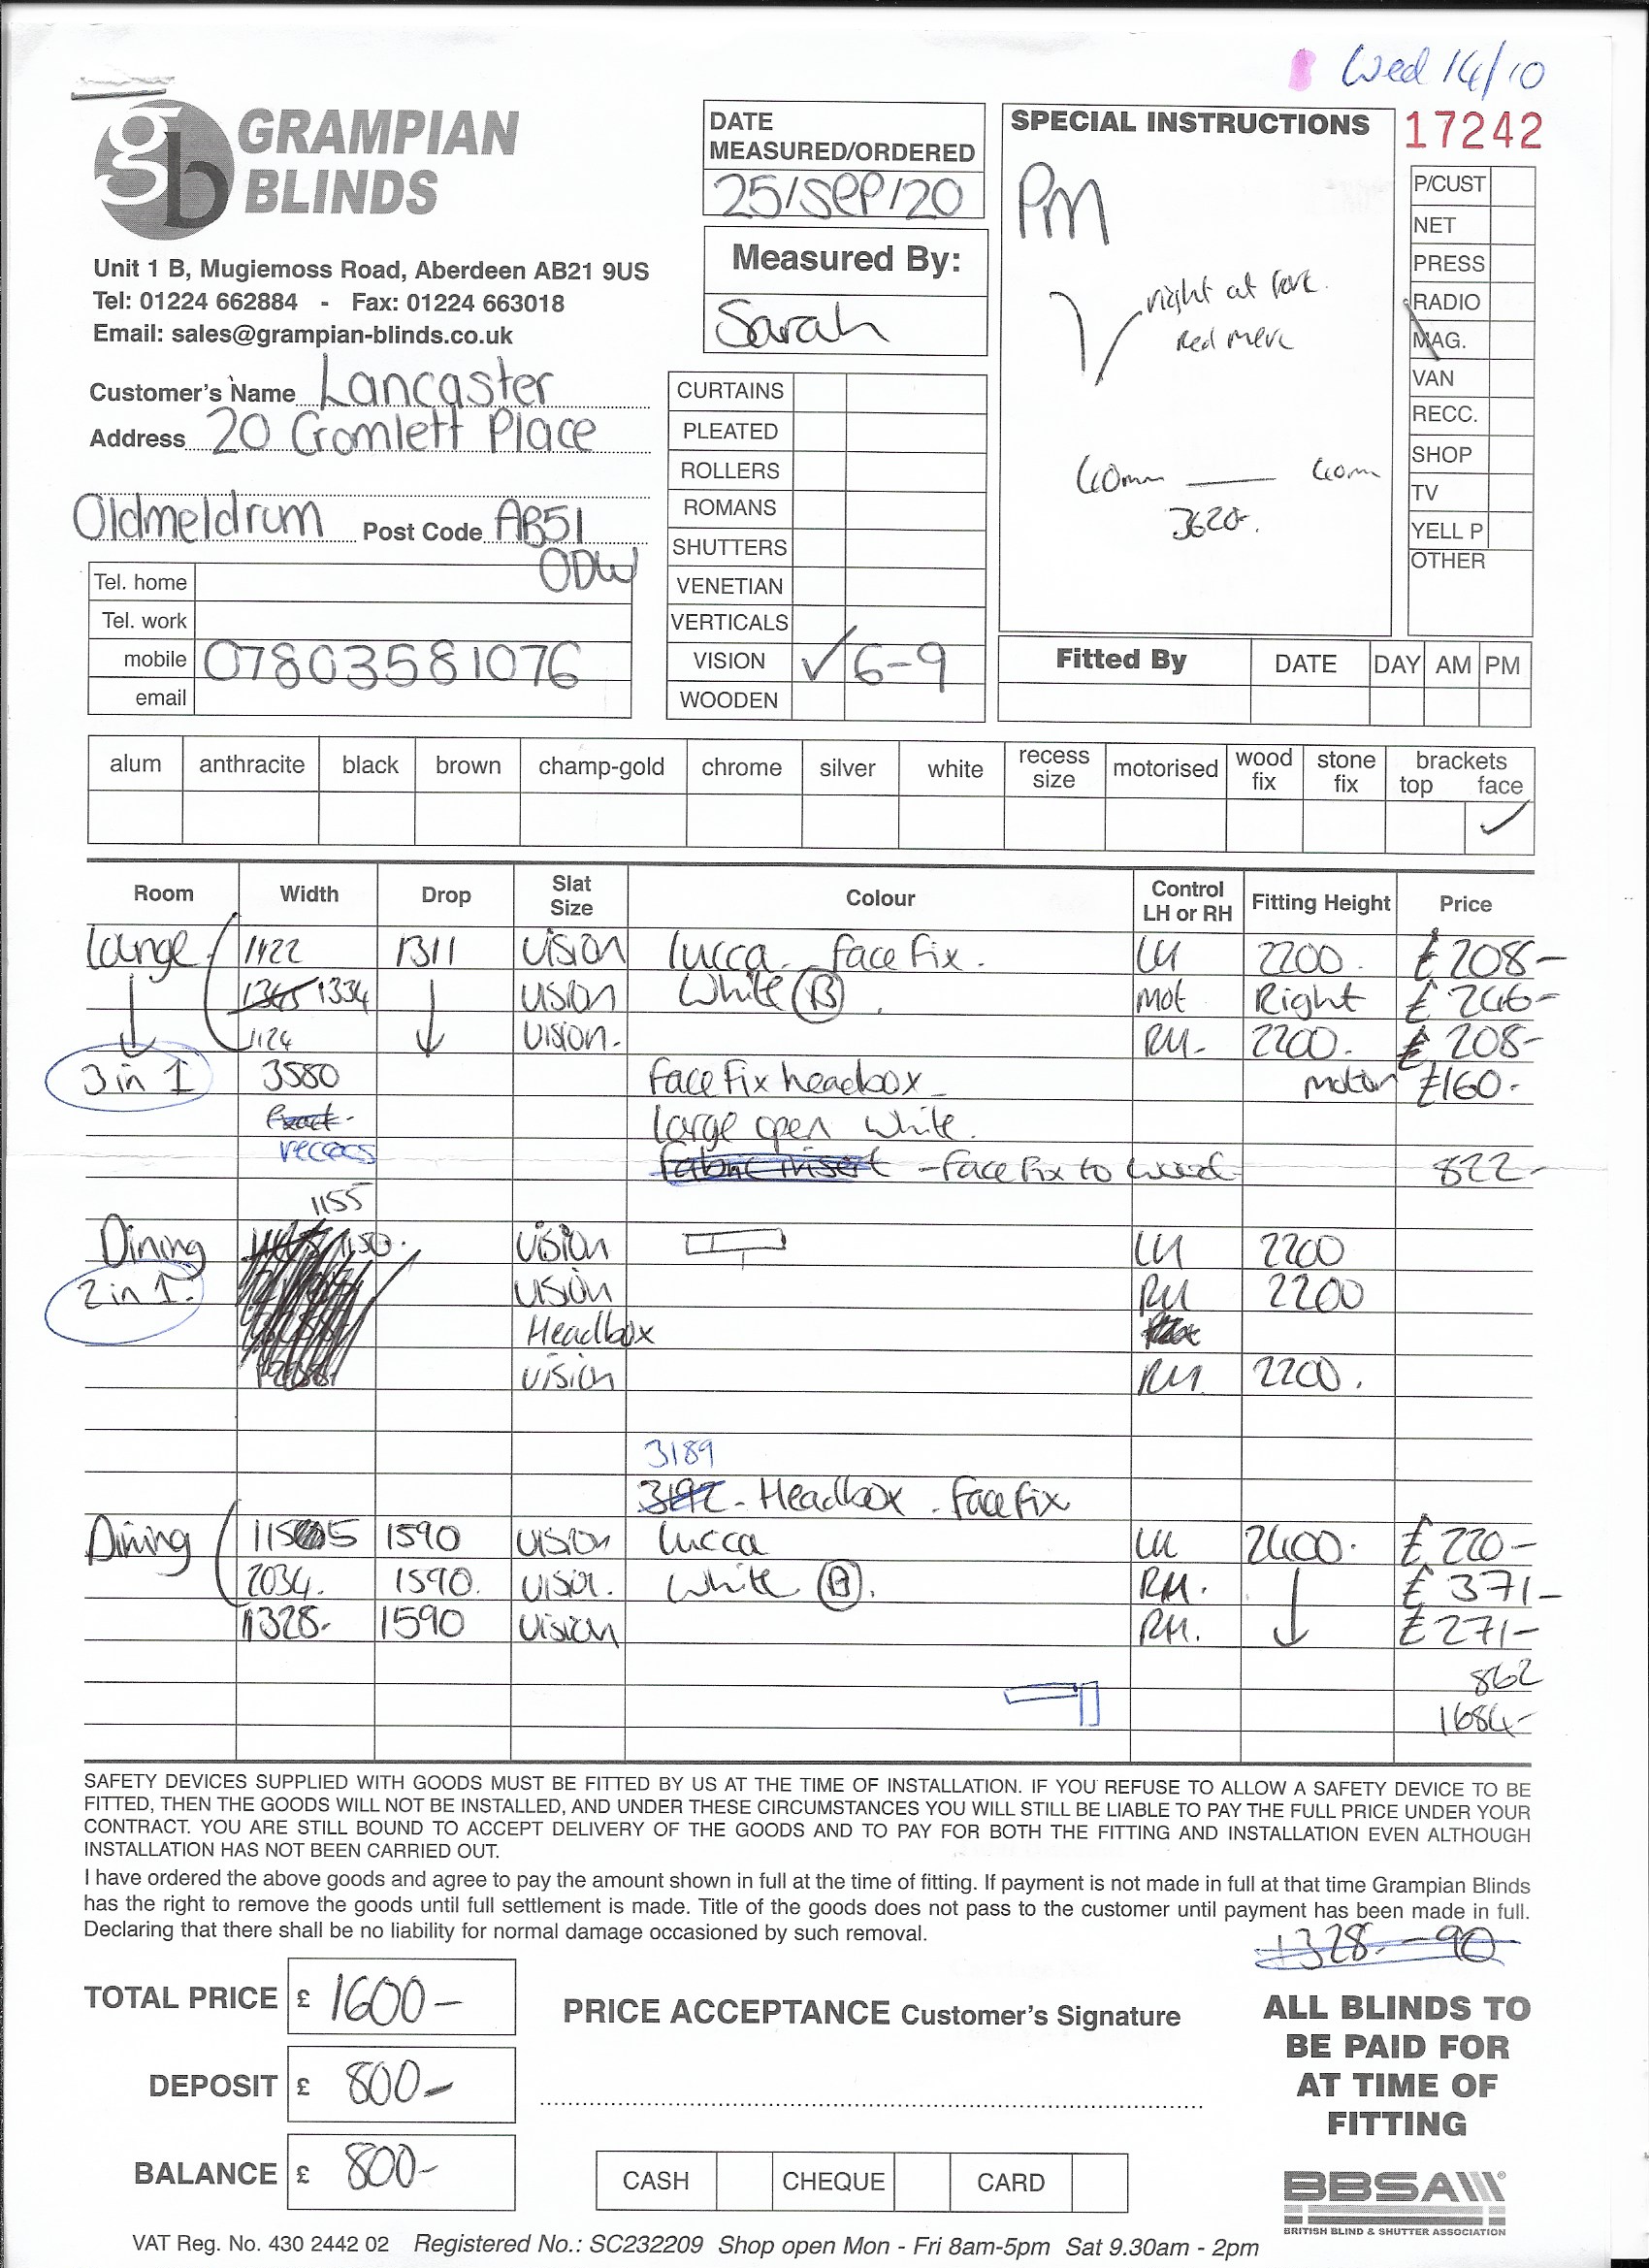 Wed 14/10
GRAMPIAN
BLINDS
Unit 1 B, Mugiemoss Road, Aberdeen AB21 9US
Tel: 01224 662884 - Fax: 01224 663018
Email: sales@grampian-blinds.co.uk
Customer's Name Lancaster
Address 20 Cromlett Place
Oldmeldrum Post Code AB51
0DW
Tel. home
Tel. work
mobile 07803581076
email
DATE
MEASURED/ORDERED
25/SEP/20
Measured By:
Sarah
CURTAINS
PLEATED
ROLLERS
ROMANS
SHUTTERS
VENETIAN
VERTICALS
VISION ✓ 6-9
WOODEN
SPECIAL INSTRUCTIONS
PM
right at fork
red merc
40mm 40mm
3620-
17242
P/CUST
NET
PRESS
RADIO
MAG.
VAN
RECC.
SHOP
TV
YELL P
OTHER
Fitted By DATE DAY AM PM
alum anthracite black brown champ-gold chrome silver white recess size motorised wood fix stone fix brackets top face
✓
Room Width Drop Slat Size Colour Control LH or RH Fitting Height Price
Lounge 1122 1311 Vision lucca - face fix. LH 2200 £208-
1365 1334 Vision White (B) Mot Right £246-
1124 Vision. RH- 2200. £208-
3 in 1 3580 face fix headbox motor £160-
Exact-
large open white.
recess
fabric insert - face fix to wood 822-
1155
Dining 1150. Vision LH 2200
2 in 1. Vision RH 2200
Headbox
Vision RH. 2200.
3189
3192- Headbox - face fix
Dining 1155 1590 Vision lucca LH 2400. £220-
2034. 1590. Vision. White (B). RH. £371-
1328- 1590 Vision RH. £271-
862
1684-
SAFETY DEVICES SUPPLIED WITH GOODS MUST BE FITTED BY US AT THE TIME OF INSTALLATION. IF YOU REFUSE TO ALLOW A SAFETY DEVICE TO BE
FITTED, THEN THE GOODS WILL NOT BE INSTALLED, AND UNDER THESE CIRCUMSTANCES YOU WILL STILL BE LIABLE TO PAY THE FULL PRICE UNDER YOUR
CONTRACT. YOU ARE STILL BOUND TO ACCEPT DELIVERY OF THE GOODS AND TO PAY FOR BOTH THE FITTING AND INSTALLATION EVEN ALTHOUGH
INSTALLATION HAS NOT BEEN CARRIED OUT.
I have ordered the above goods and agree to pay the amount shown in full at the time of fitting. If payment is not made in full at that time Grampian Blinds
has the right to remove the goods until full settlement is made. Title of the goods does not pass to the customer until payment has been made in full.
Declaring that there shall be no liability for normal damage occasioned by such removal.
1328.-90
TOTAL PRICE £ 1600-
DEPOSIT £ 800-
BALANCE £ 800-
PRICE ACCEPTANCE Customer's Signature
CASH CHEQUE CARD
ALL BLINDS TO
BE PAID FOR
AT TIME OF
FITTING
BBSA
BRITISH BLIND & SHUTTER ASSOCIATION
VAT Reg. No. 430 2442 02 Registered No.: SC232209 Shop open Mon - Fri 8am-5pm Sat 9.30am - 2pm